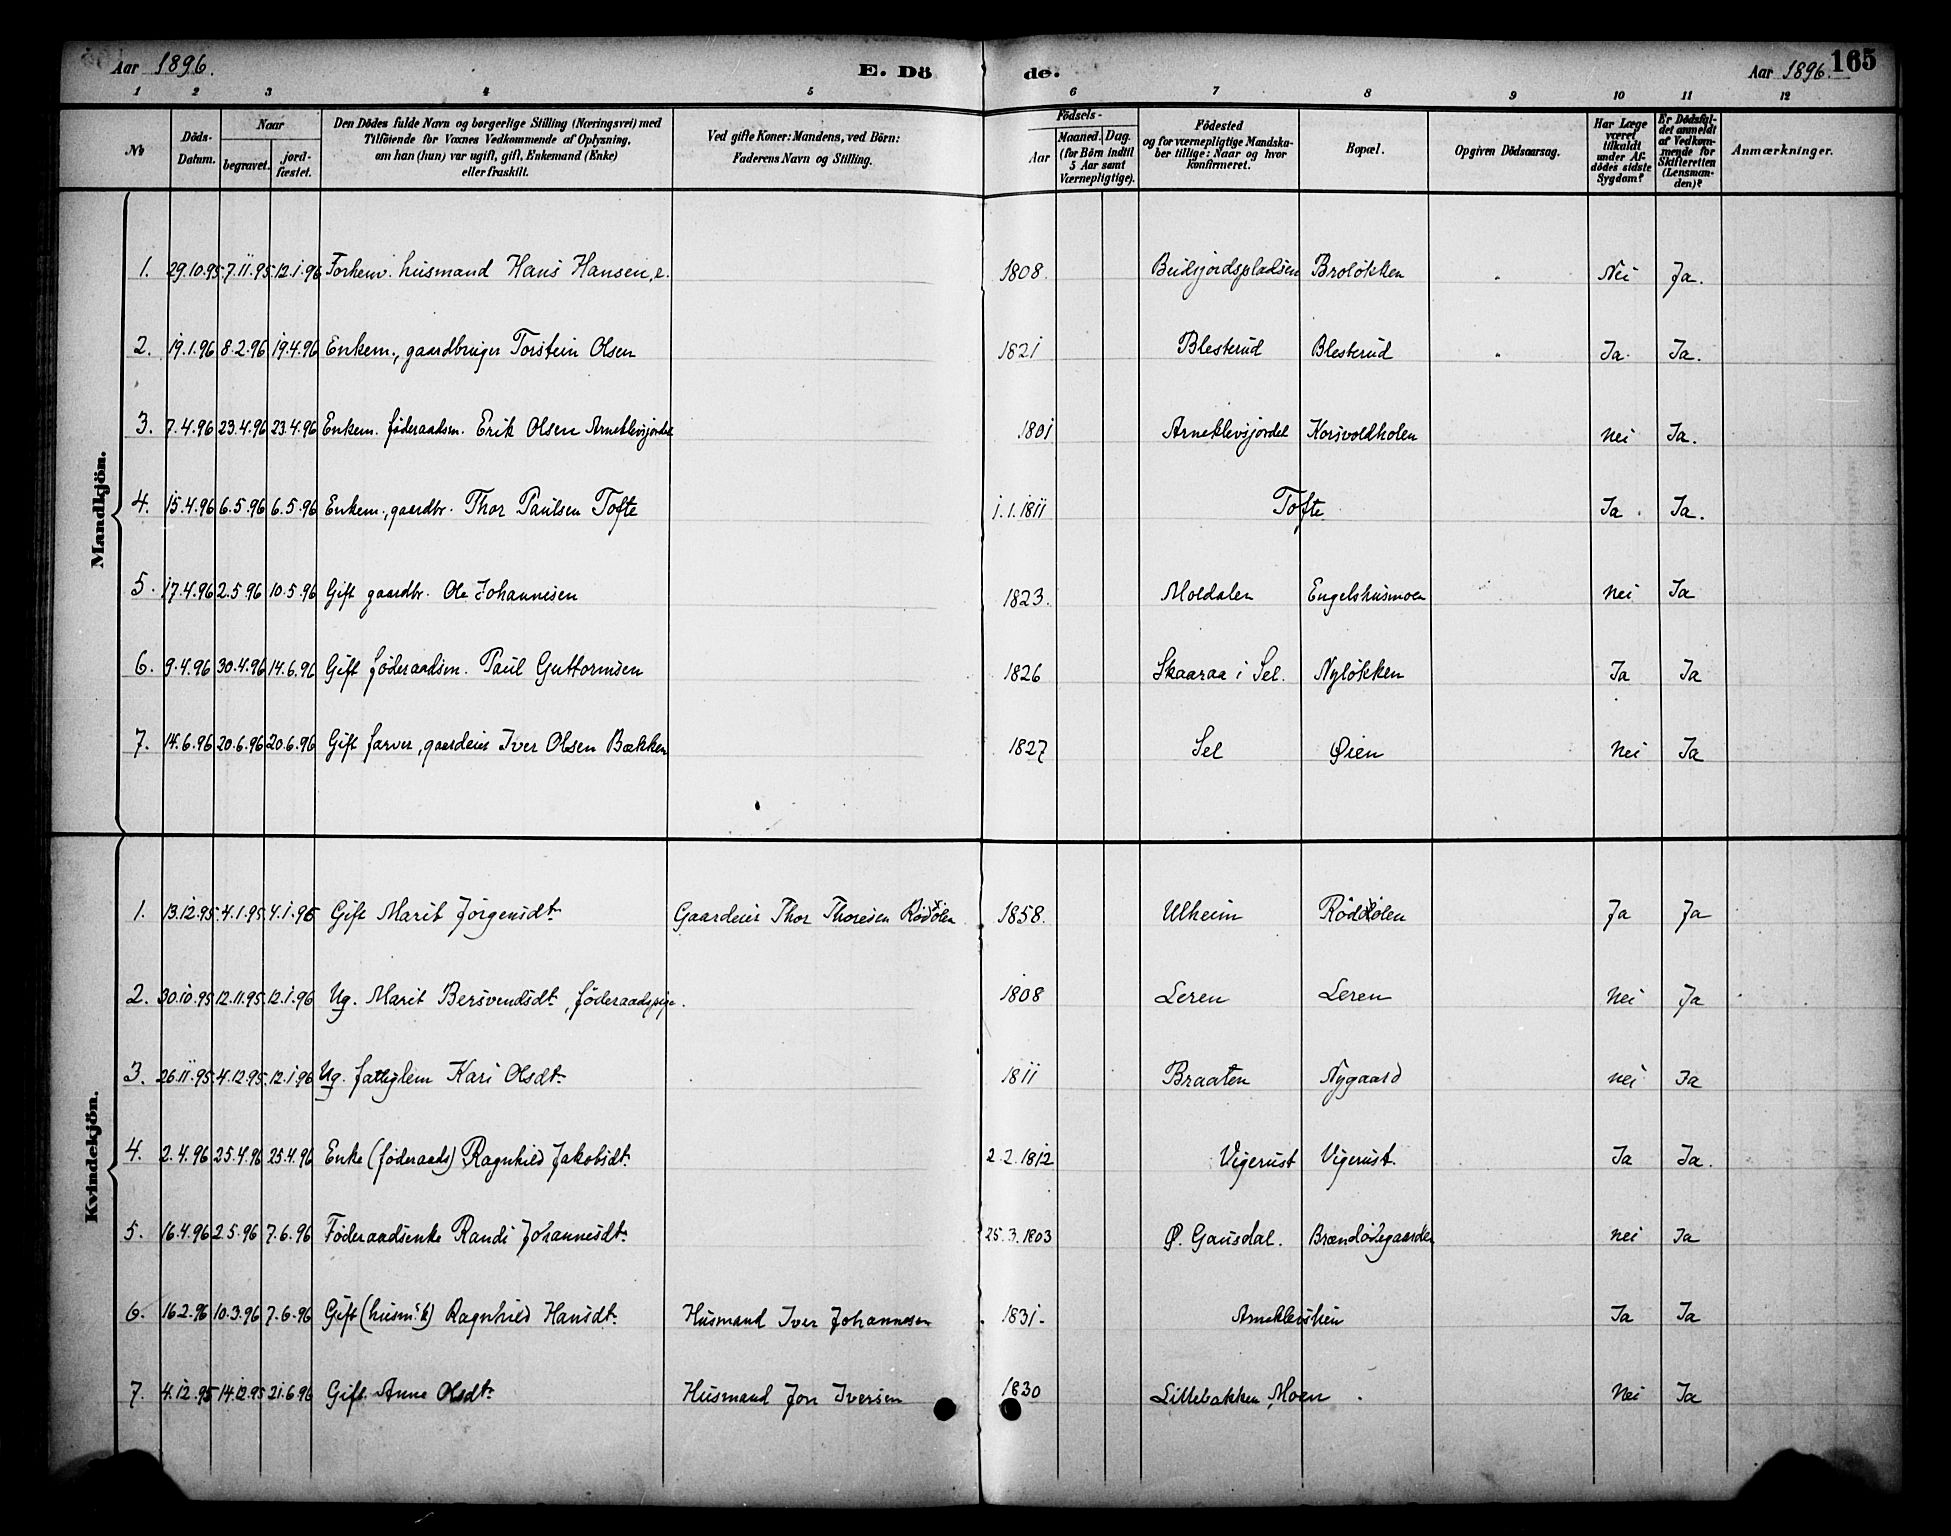 Aar 1896. E. Dö de. Aar 1896. 165
1 2 3 4 5 6 7 8 9 10 11 12
№ Döds-Datum. Naar begravet. jord-fæstet. Den Dödes fulde Navn og borgerlige Stilling (Næringsvei) med Tilföiende for Voxnes Vedkommende af Oplysning, om han (hun) var ugift, gift, Enkemand (Enke) eller fraskilt. Ved gifte Koner: Mandens, ved Börn: Faderens Navn og Stilling. Födsels- Aar Maaned. Dag. (for Börn indtil 5 Aar samt Værnepligtige). Födested og for værnepligtige Mandskaber tillige: Naar og hvor konfirmeret. Bopæl. Opgiven Dödsaarsag. Har Læge været tilkaldt under Afdödes sidste Sygdom? Er Dödsfaldet anmeldt af Vedkommende for Skifteretten (Lensmanden)? Anmærkninger.
Mandkjön.
1. 29.10.95 7.11.95 12.1.96 Forhenv. husmand Hans Hansen, e. 1808. Broløkken Nei Ja.
2. 19.1.96 8.2.96 19.4.96 Enkem., gaardbruger Torstein Olsen 1821 Blesterud Blesterud Ja Ja.
3. 7.4.96 23.4.96 23.4.96 Enkem. føderaadsm. Erik Olsen Arneklevsjordet 1801 Arneklevsjordet Korsvoldholen Nei Ja.
4. 15.4.96 6.5.96 6.5.96 Enkem., gaardbr. Thor Paulsen Tofte 1.1.1811 Tofte. Ja. Ja.
5. 17.4.96 2.5.96 10.5.96 Gift gaardbr. Ole Johannesen 1823. Moedalen Engelshusmoen Nei Ja
6. 9.4.96 30.4.96 14.6.96 Gift føderaadsm. Paul Guttormsen 1826 Skaaraa i Sel. Nyløkken Ja Ja
7. 14.6.96 20.6.96 20.6.96 Gift farver, gaardeier Iver Olsen Bækken 1827 Sel Øien Nei Ja
Kvindekjön.
1. 13.12.95 4.1.95 4.1.96 Gift Marit Jørgensdt. Gaardeier Thor Thoresen 1858. Ulheim Ja Ja
2. 30.10.95 12.11.95 12.1.96 Ug. Marit Bersvendsdt., føderaadspige. 1808 Leren Leren Nei Ja
3. 26.11.95 4.12.95 12.1.96 Ug. fattiglem Kari Olsdt. 1811 Braaten Nygaard nei Ja
4. 2.4.96 25.4.96 25.4.96 Enke (føderaads) Ragnhild Jakobsdt. 2.2.1812 Vigerust Vigerust. Ja Ja.
5. 16.4.96 2.5.96 7.6.96 Føderaadsenke Randi Johannesdt. 25.3.1803 Ø. Gausdal. Brændødegaarden Nei Ja
6. 16.2.96 10.3.96 7.6.96 Gift (husm.k) Ragnhild Hansdt. Husmand Iver Johannesen 1831. Arneklevslien Ja Ja
7. 4.12.95 14.12.95 21.6.96 Gift Anne Olsdt. Husmand Jon Iversen 1830 Lillebakken, Moen Nei Ja